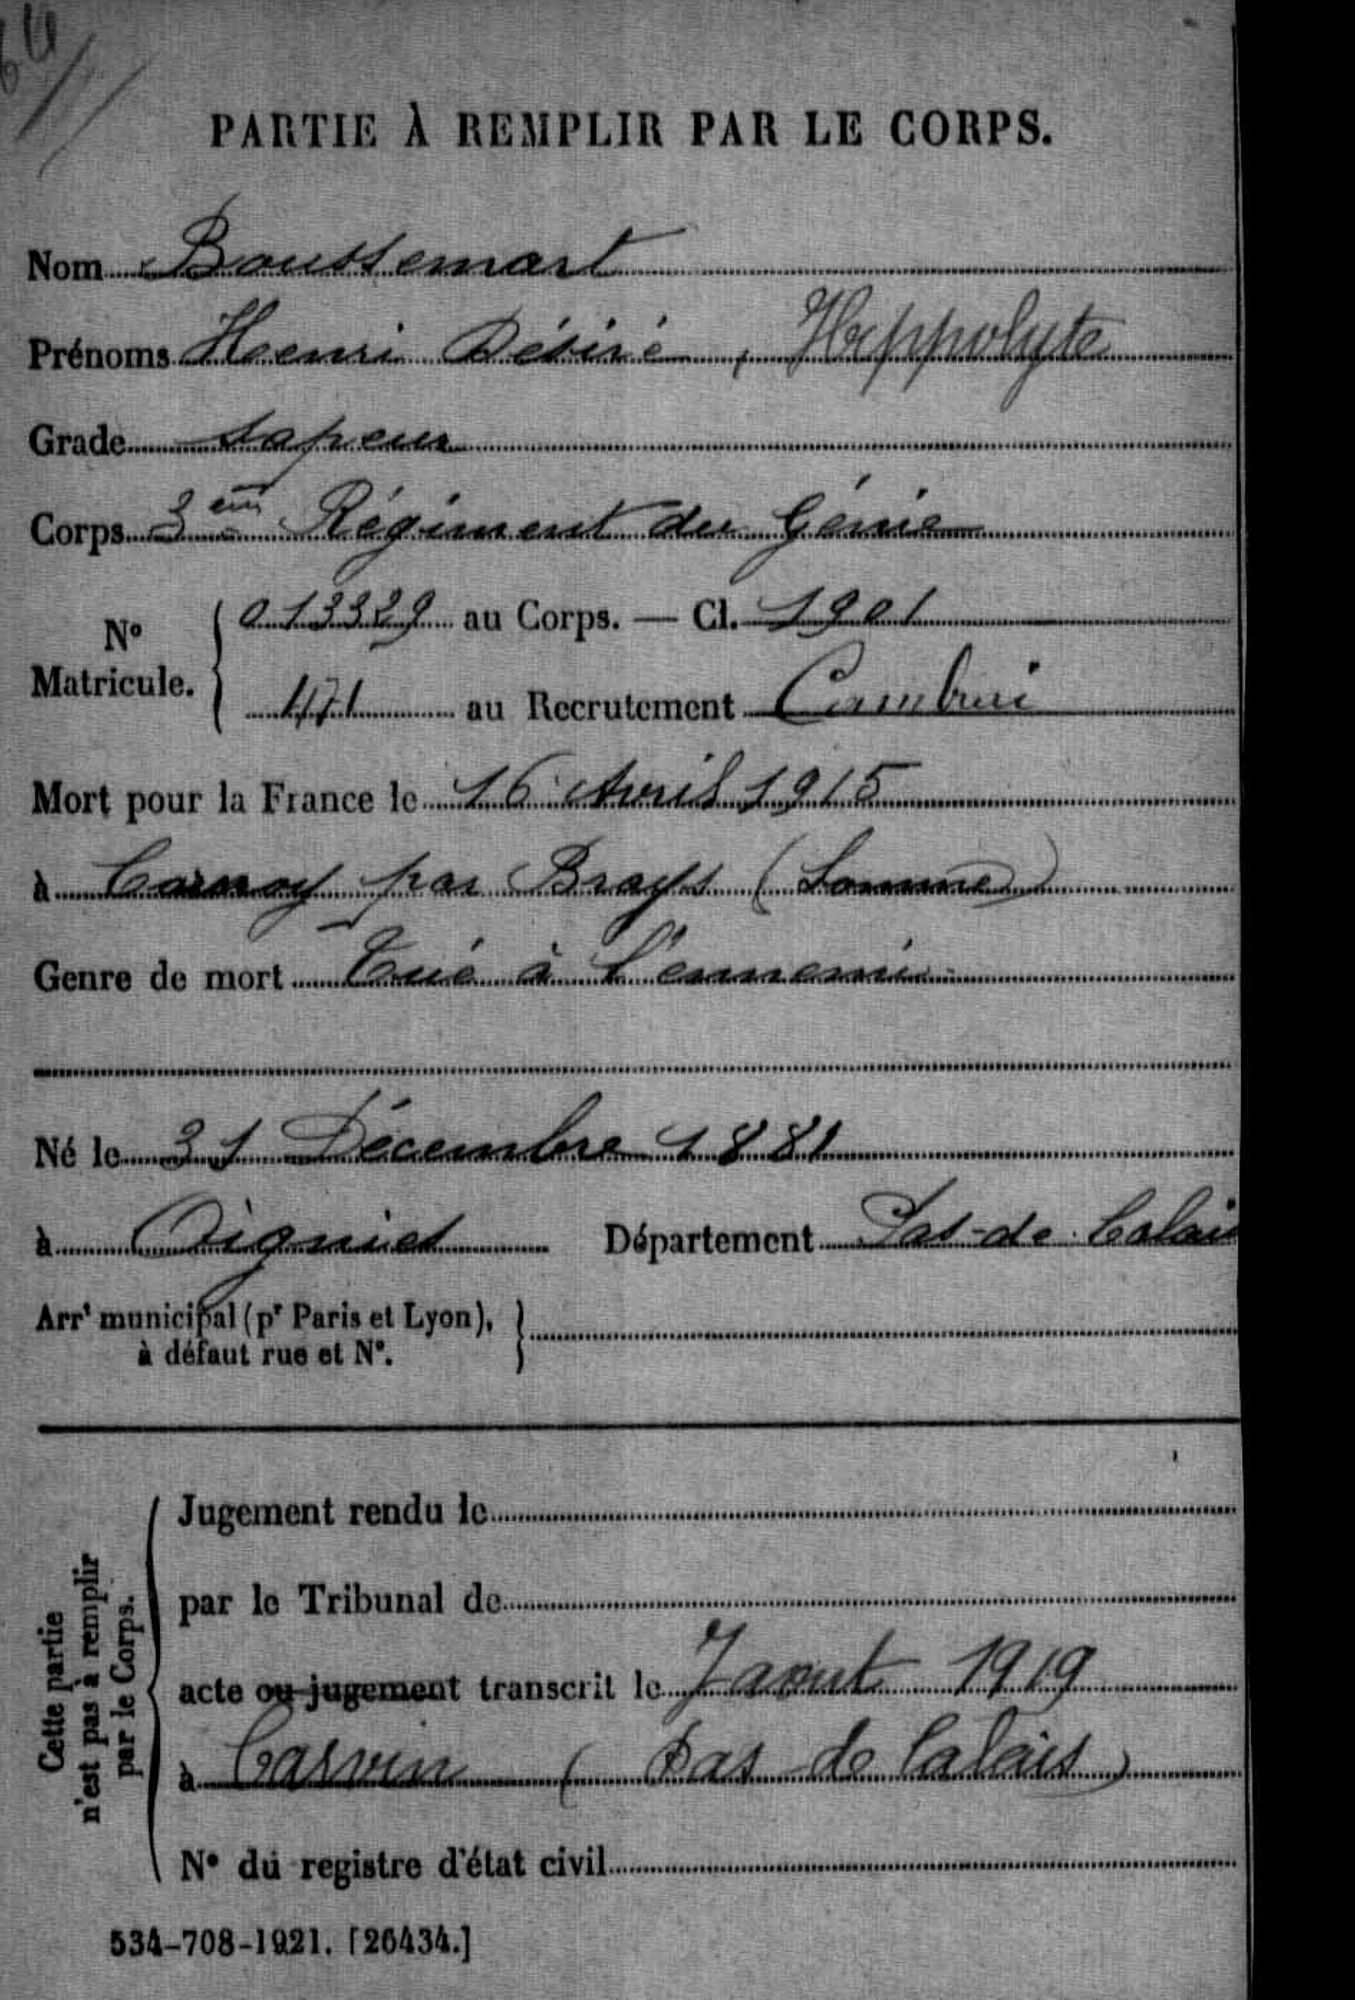 64
PARTIE À REMPLIR PAR LE CORPS.
Nom Boussemart
Prénoms Henri Désiré, Hippolyte
Grade Sapeur
Corps 3ème Régiment du Génie
N° Matricule. 013329 au Corps. — Cl. 1901
471 au Recrutement Cambrai
Mort pour la France le 16 Avril 1915
à Carnoy par Brays (Somme)
Genre de mort Tué à l'ennemi
Né le 31 Décembre 1881
à Oignies Département Pas-de-Calais
Arrt municipal (pr Paris et Lyon),
à défaut rue et N°.
Cette partie
n'est pas à remplir
par le Corps.
Jugement rendu le
par le Tribunal de
acte ou jugement transcrit le 7 aout 1919
à Carvin (Pas de Calais)
N° du registre d'état civil
534-708-1921. [26434.]